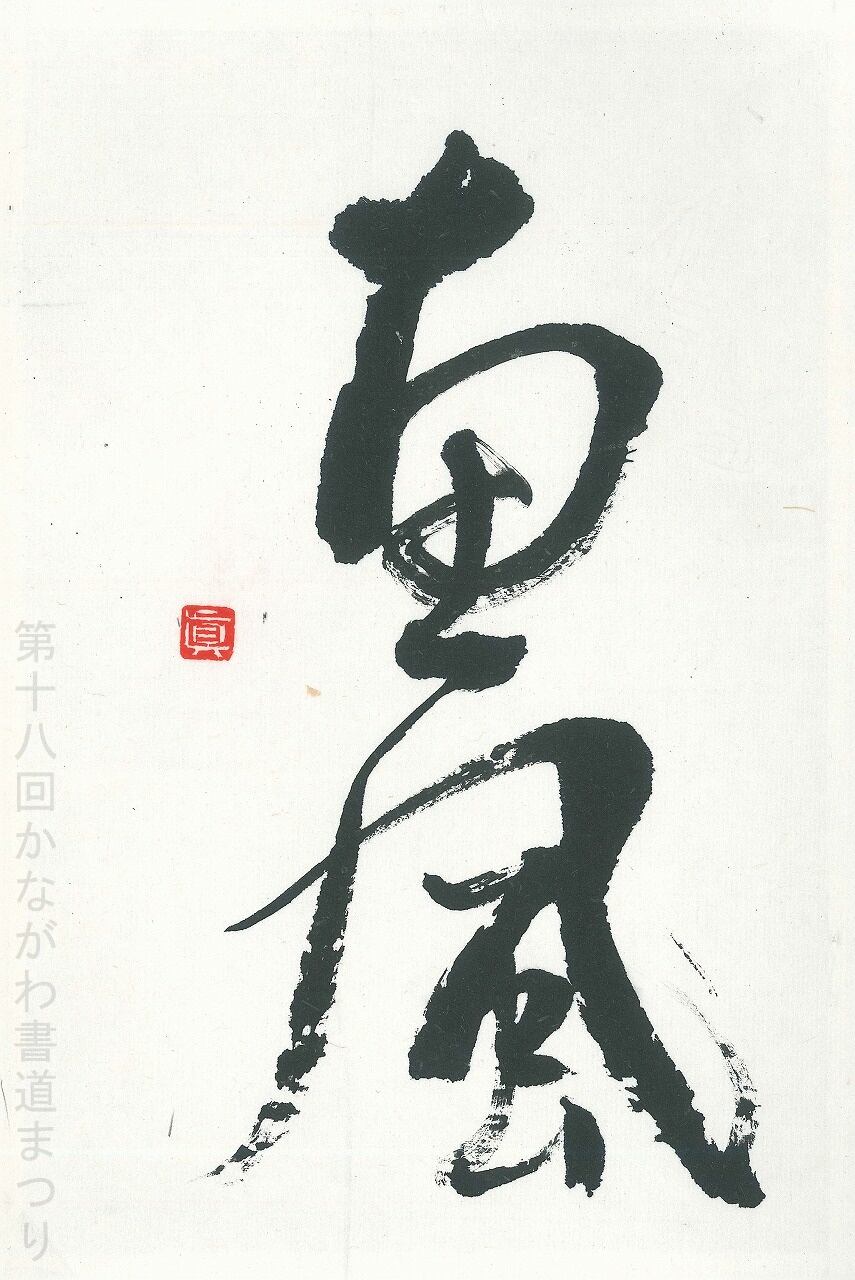 南風
眞
第十八回かながわ書道まつり